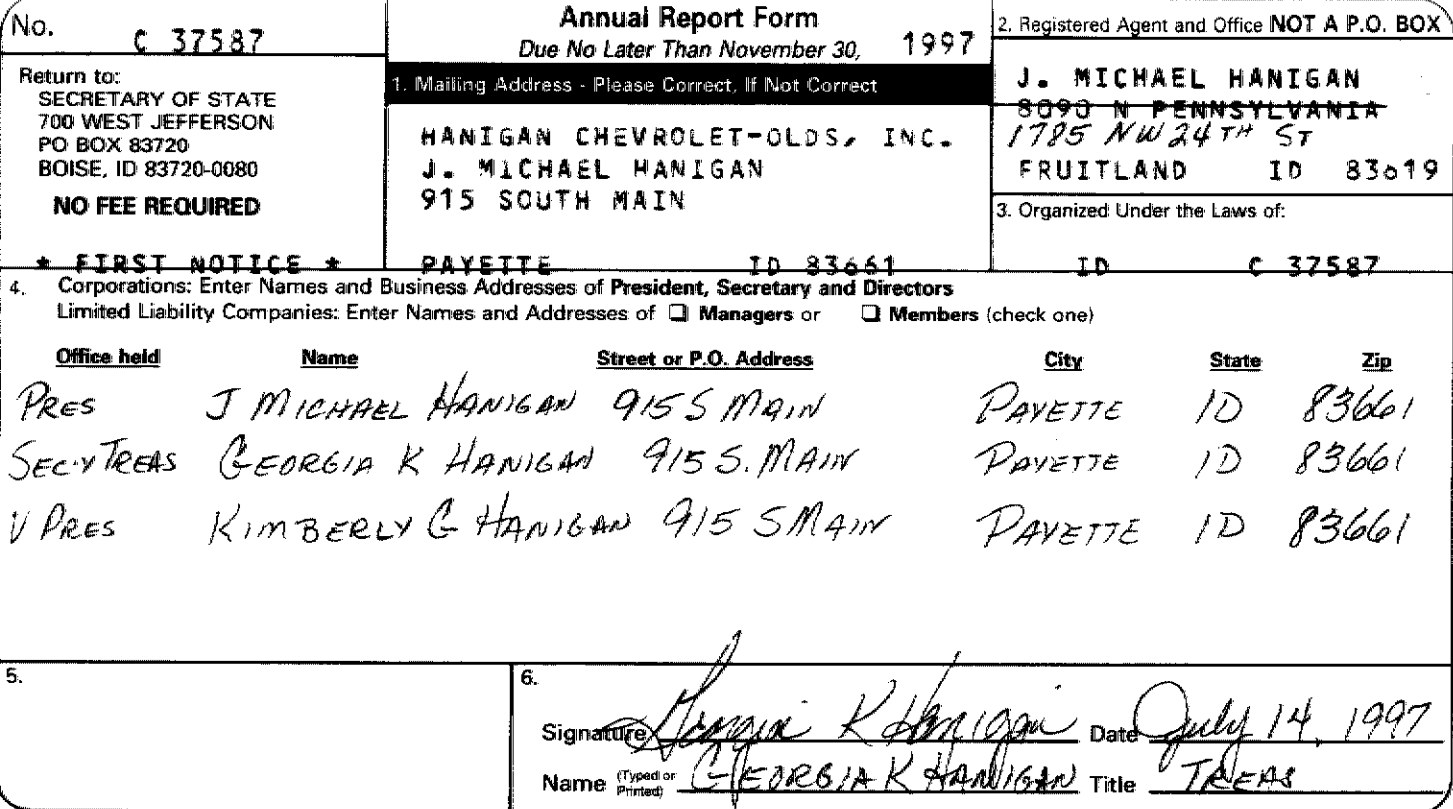 No. C 37587
Return to:
SECRETARY OF STATE
700 WEST JEFFERSON
PO BOX 83720
BOISE, ID 83720-0080
NO FEE REQUIRED
* FIRST NOTICE *
Annual Report Form
Due No Later Than November 30, 1997
1. Mailing Address - Please Correct, If Not Correct
HANIGAN CHEVROLET-OLDS, INC.
J. MICHAEL HANIGAN
915 SOUTH MAIN
PAYETTE ID 83661
2. Registered Agent and Office NOT A P.O. BOX
J. MICHAEL HANIGAN
8090 N PENNSYLVANIA
1785 NW 24TH ST
FRUITLAND ID 83619
3. Organized Under the Laws of:
ID C 37587
4. Corporations: Enter Names and Business Addresses of President, Secretary and Directors
Limited Liability Companies: Enter Names and Addresses of ❑ Managers or ❑ Members (check one)
Office held Name Street or P.O. Address City State Zip
PRES J MICHAEL HANIGAN 915 S MAIN PAYETTE ID 83661
SEC'Y TREAS GEORGIA K HANIGAN 915 S. MAIN PAYETTE ID 83661
V PRES KIMBERLY G HANIGAN 915 S MAIN PAYETTE ID 83661
5.
6.
Signature Georgia K Hanigan Date July 14, 1997
Name (Typed or Printed) GEORGIA K HANIGAN Title TREAS